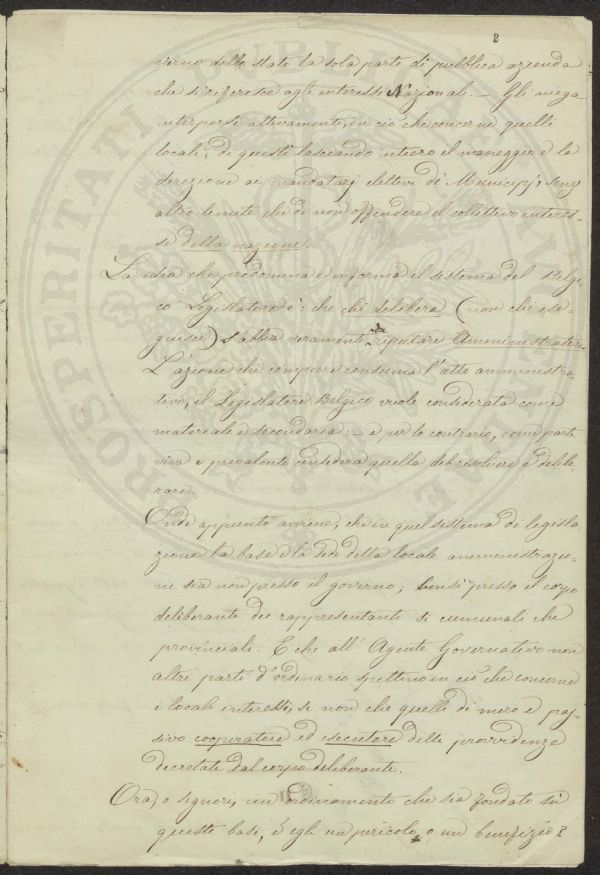 2
verno dello stato la sola parte di pubblica azienda
che si riferisce agli interessi Nazionali. — Gli niega
interporsi attivamente, in ciò che concerne quelli
locali, di questi lasciando intiero il maneggio e la
direzione ai mandatarj elettivi di Municipj, senz'
altro limite che di non offendere il collettivo interes=
se della nazione.
La idea che predomina e informa il sistema del Belgi=
co Legislatore è: che chi delibera (non chi ese=
guisce) s'abbia veramente da riputare Amministratore.
L'azione che compie e consuma l'atto amministra=
tivo, il Legislatore Belgico vuole considerata come
materiale e secondaria: — e per lo contrario, come parte
viva e prevalente considera quella del risolvere e delibe=
rare.
Onde appunto avviene, che in quel sistema di legisla=
zione la base e la sede della locale amministrazio=
ne sia non presso il governo, bensì presso il corpo
deliberante dei rappresentanti sì comunali che
provinciali. E che all'Agente Governativo non
altre parti d'ordinario spettino in ciò che concerne
i locali interessi, se non che quelle di mero e pas=
sivo cooperatore ed esecutore delle provvidenze
decretate dal corpo deliberante.
Ora, o signori, un ordinamento che sia fondato su
queste basi, è egli un pericolo, o un benefizio?
PROSPERITATI PUBLICAE